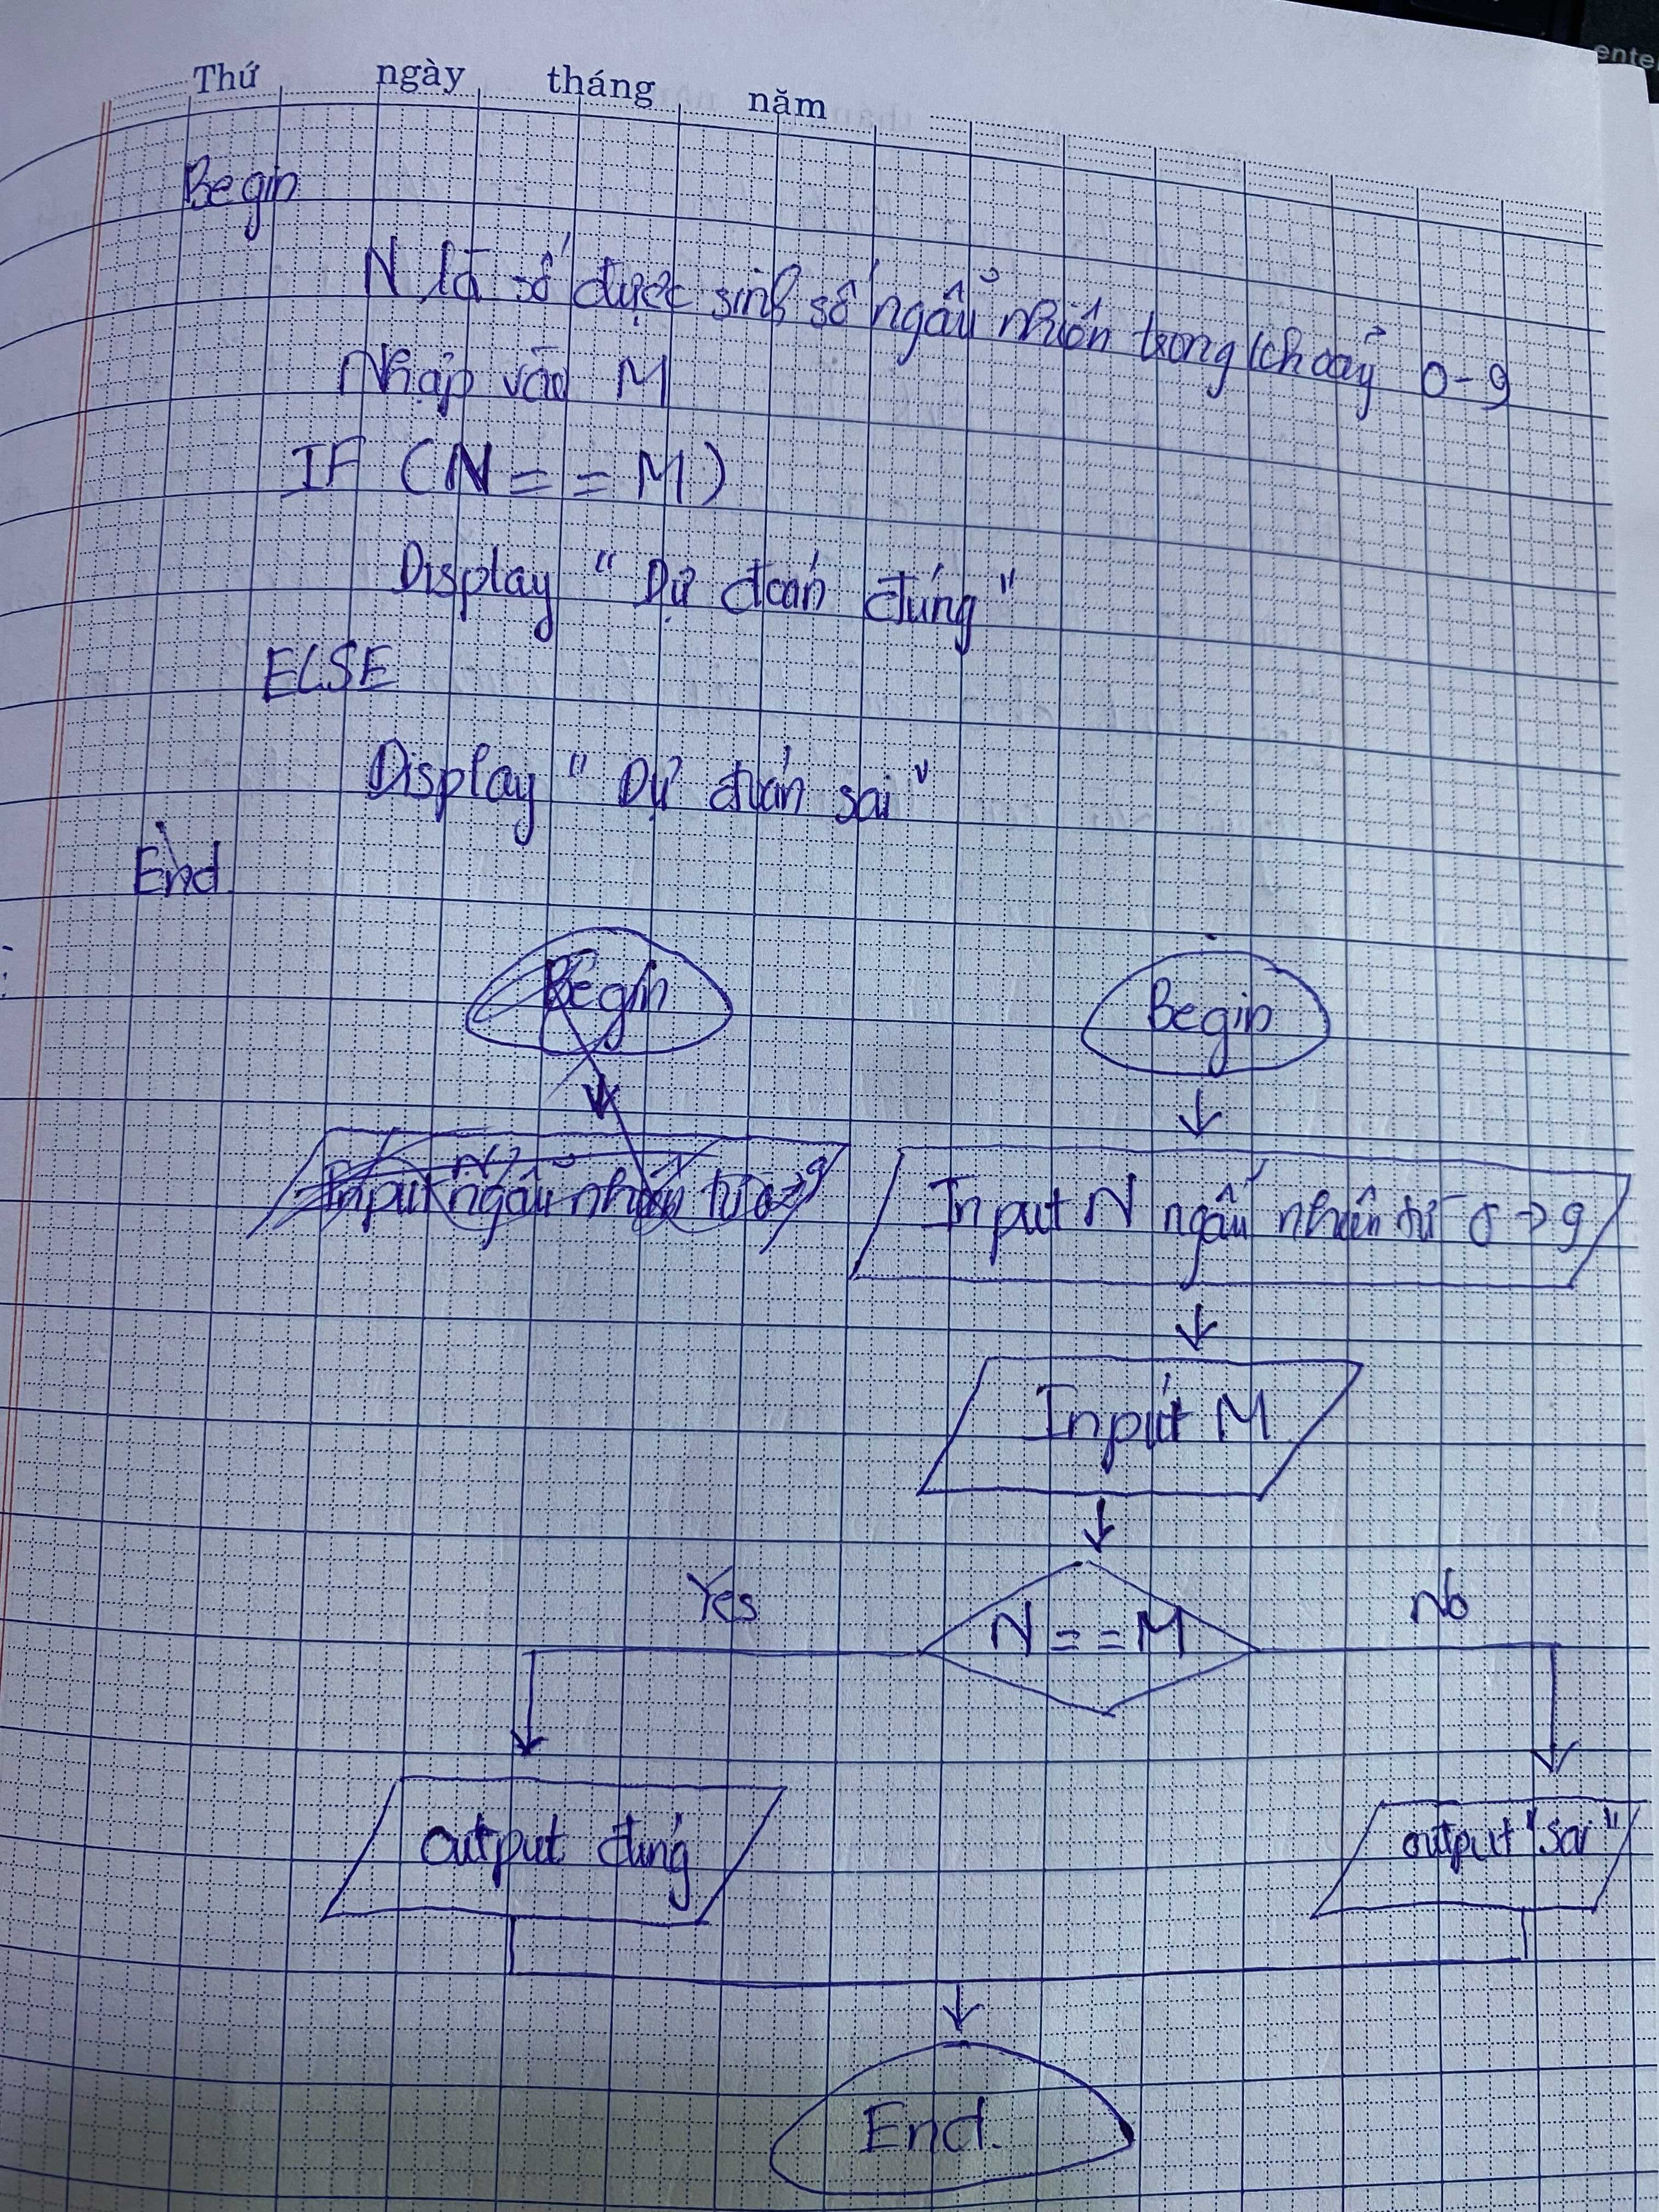 enter
Thứ ngày tháng năm
Begin
N là số được sinh số ngẫu nhiên trong khoảng 0-9
Nhập vào M
IF (N == M)
Display "Dự đoán đúng"
ELSE
Display "Dự đoán sai"
End
Begin
Input N ngẫu nhiên từ 0->9
Begin
Input N ngẫu nhiên từ 0->9
Input M
Yes
N==M
No
output đúng
output "sai"
End.